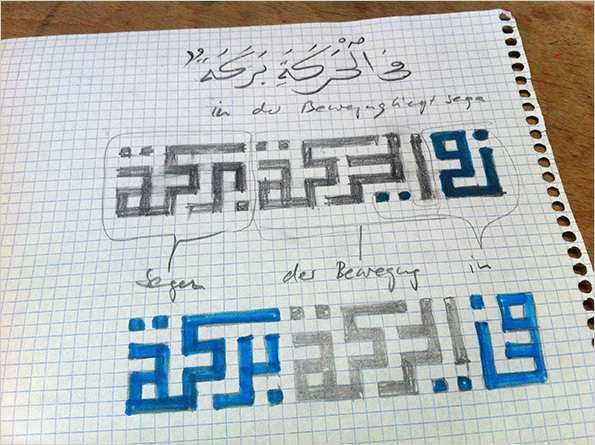 في ٱلْحَرَكَةِ بَرَكَةٌ
in der Bewegung liegt Segen
في الحركة بركة
Segen der Bewegung in
في الحركة بركة